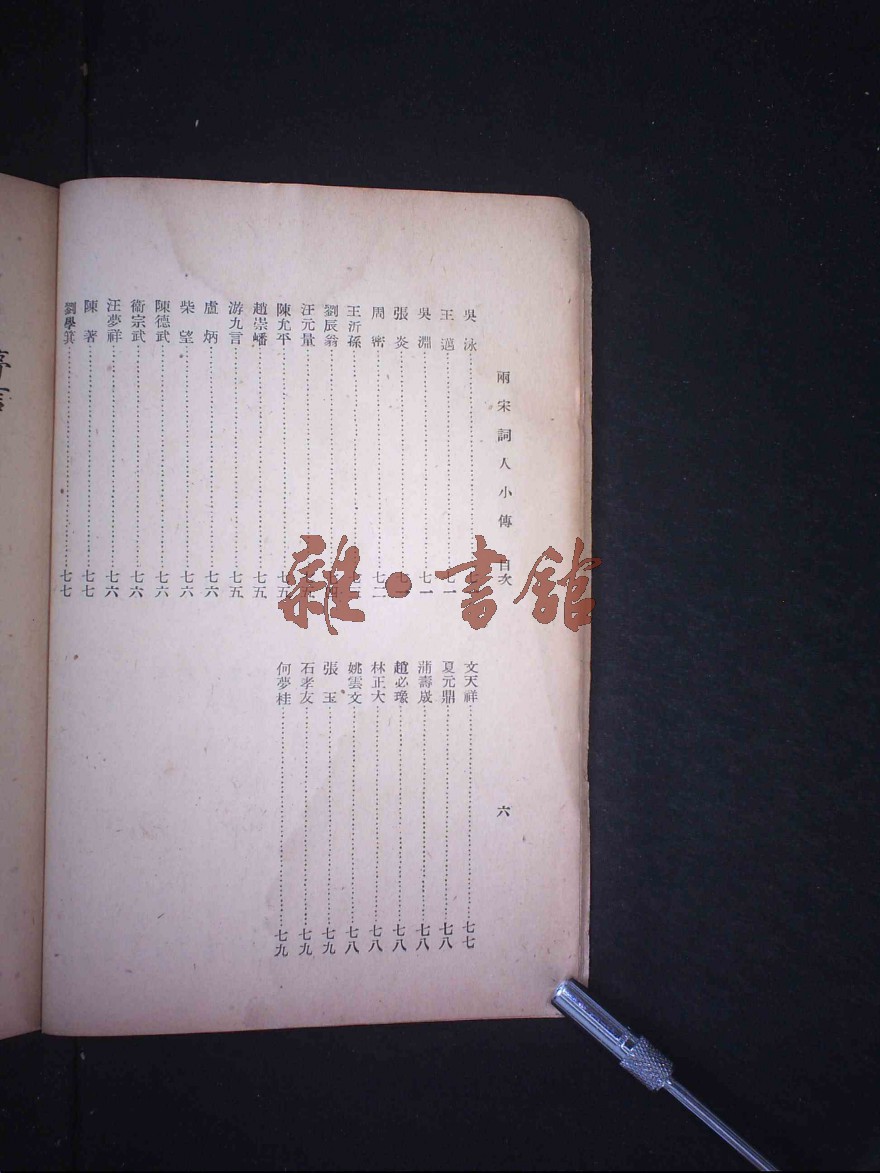 兩宋詞人小傳 目次 六
吳泳
王邁……七一
吳淵……七一
張炎……七一
周密……七二
王沂孫
劉辰翁……四
汪元量……五
陳允平……七五
趙崇嶓……七五
游九言……七五
盧炳……七六
柴望……七六
陳德武……七六
衞宗武……七六
汪夢祥……七六
陳著……七七
劉學箕……七七
文天祥……七七
夏元鼎……七八
蒲壽宬……七八
趙必瑑……七八
林正大……七八
姚雲文……七八
張玉……七九
石孝友……七九
何夢桂……七九
雜·書館